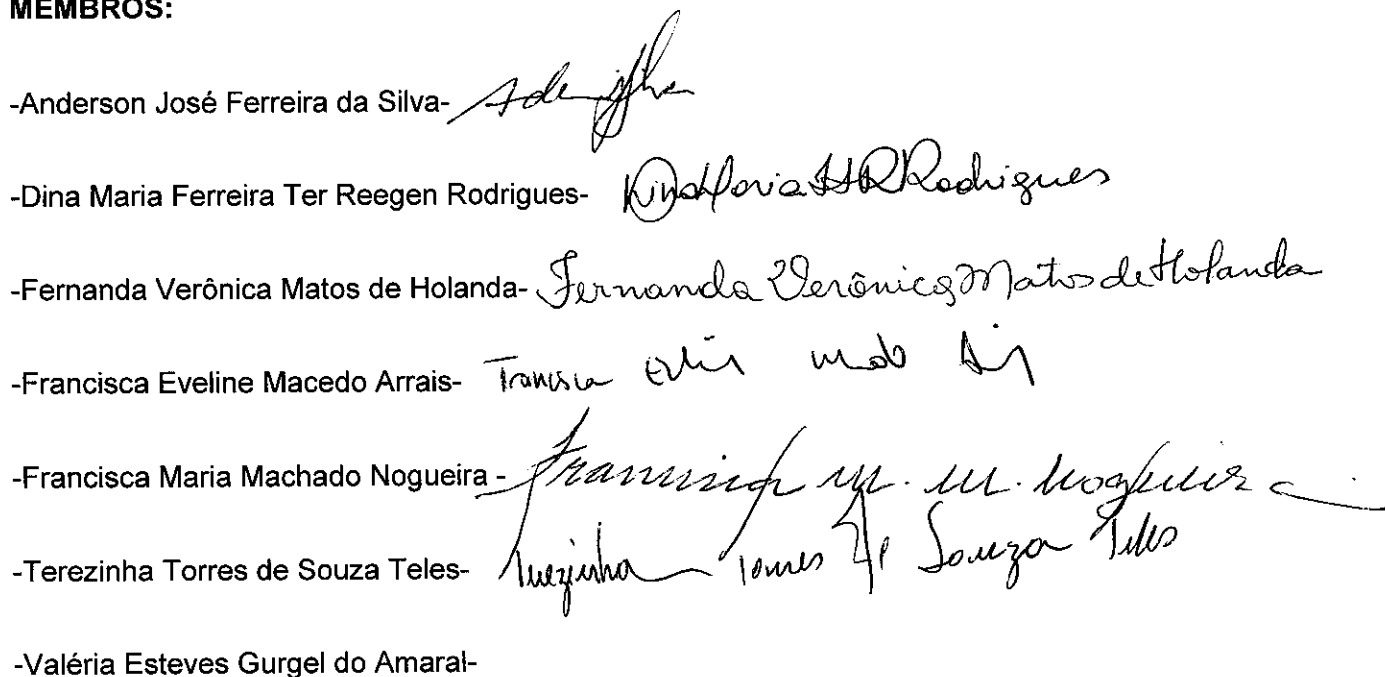 MEMBROS:
-Anderson José Ferreira da Silva-
-Dina Maria Ferreira Ter Reegen Rodrigues- Rodrigues
-Fernanda Verônica Matos de Holanda- Fernanda Verônica Matos de Holanda
-Francisca Eveline Macedo Arrais-
-Francisca Maria Machado Nogueira - Francisca M. M. Nogueira
-Terezinha Torres de Souza Teles- Terezinha Torres de Souza Teles
-Valéria Esteves Gurgel do Amaral-